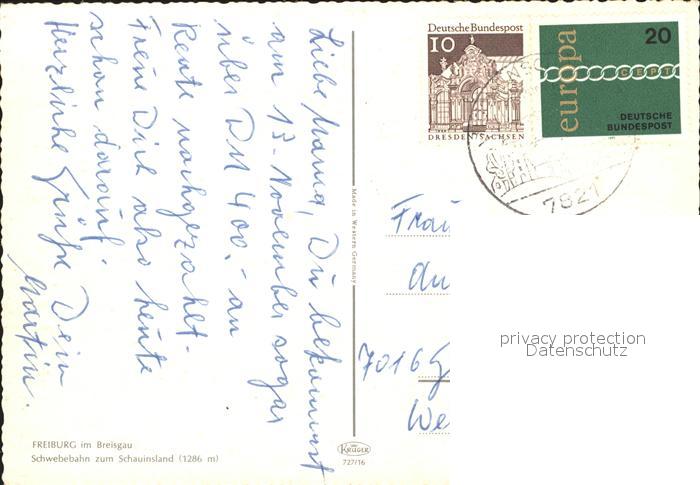 Liebe Mama, Du bekommst
am 13. November sogar
über DM 400.- an
Rente nachgezahlt.
Freue Dich also heute
schon darauf.
Herzliche Grüße Dein
Martin.
FREIBURG im Breisgau
Schwebebahn zum Schauinsland (1286 m)
Made in Western Germany
KRÜGER
727/16
Deutsche Bundespost
10
DRESDEN/SACHSEN
europa
20
CEPT
DEUTSCHE
BUNDESPOST
7821
Frau
7016
We
privacy protection
Datenschutz